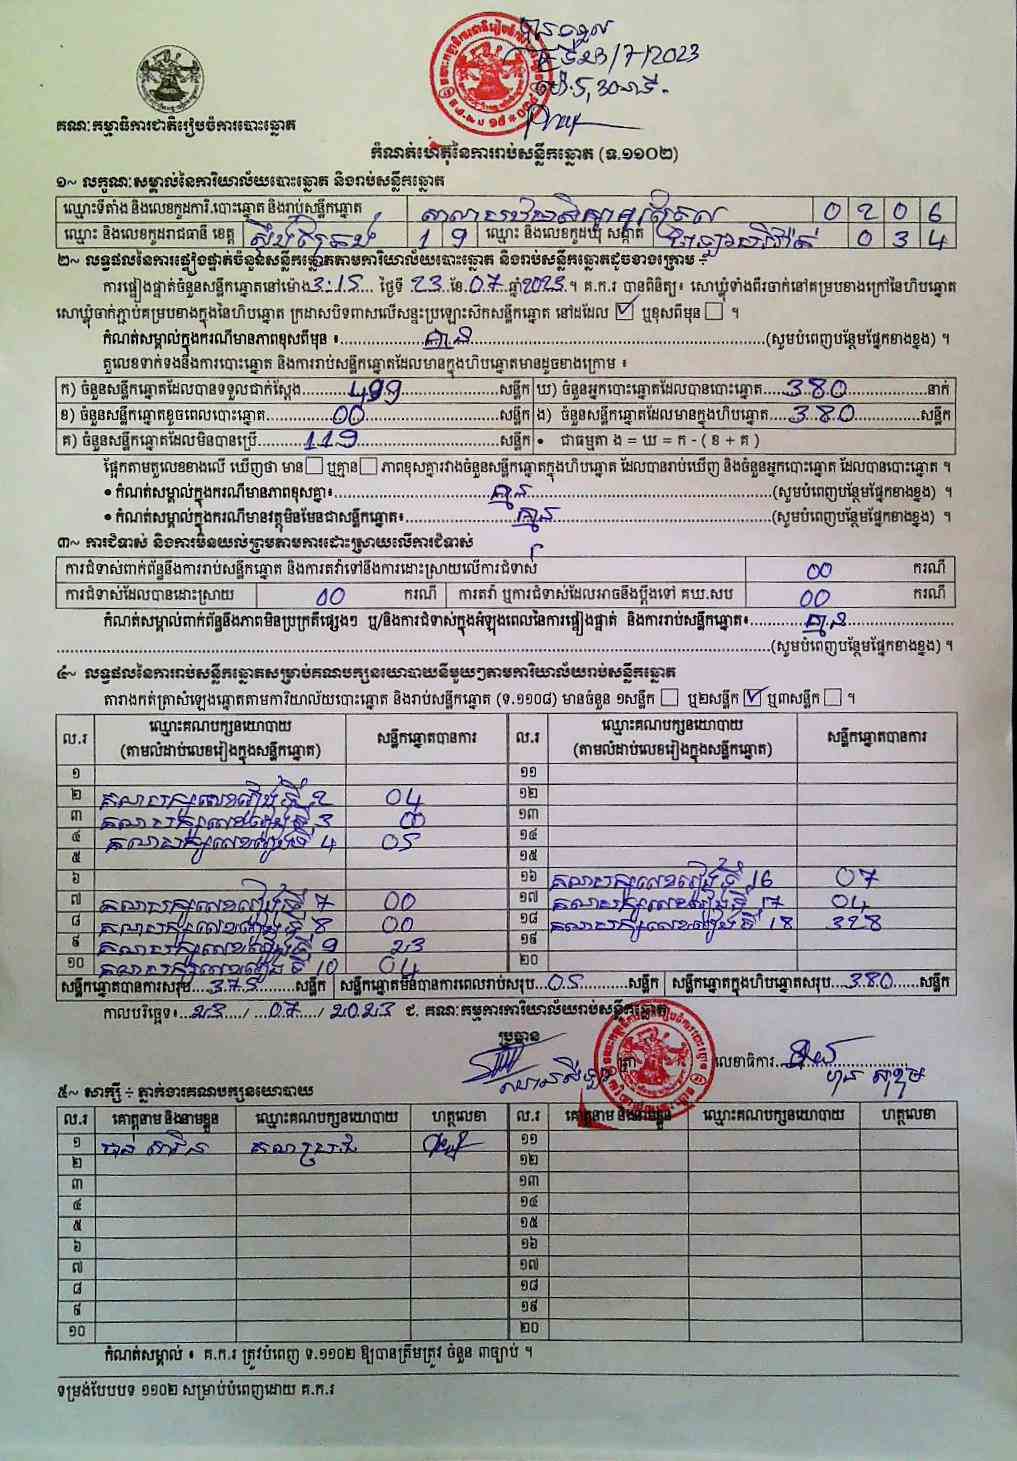 បានទទួល
ថ្ងៃទី23/7/2023
ម៉ោង5,30នាទី
គណៈកម្មាធិការជាតិរៀបចំការបោះឆ្នោត
កំណត់ហេតុនៃការរាប់សន្លឹកឆ្នោត (ទ.១១០២)
១~ លក្ខណៈសម្គាល់នៃការិយាល័យបោះឆ្នោត និងរាប់សន្លឹកឆ្នោត
ឈ្មោះទីតាំង និងលេខកូដការិ.បោះឆ្នោត និងរាប់សន្លឹកឆ្នោត 0 2 0 6
ឈ្មោះ និងលេខកូដរាជធានី ខេត្ត ស្ទឹងត្រែង 1 9 ឈ្មោះ និងលេខកូដឃុំ សង្កាត់ 0 3 4
២~ លទ្ធផលនៃការផ្ទៀងផ្ទាត់ចំនួនសន្លឹកឆ្នោតតាមការិយាល័យបោះឆ្នោត និងរាប់សន្លឹកឆ្នោតដូចខាងក្រោម ÷
ការផ្ទៀងផ្ទាត់ចំនួនសន្លឹកឆ្នោតនៅម៉ោង 3:15 ថ្ងៃទី 23 ខែ 07 ឆ្នាំ 2023 ។ គ.ក.រ បានពិនិត្យ៖ សោឃ្លុំទាំងពីរចាក់នៅគម្របខាងក្រៅនៃហិបឆ្នោត
សោឃ្លុំចាក់ភ្ជាប់គម្របខាងក្នុងនៃហិបឆ្នោត ក្រដាសបិទពាសលើសន្ទះប្រឡោះស៊កសន្លឹកឆ្នោត នៅដដែល ☑ ឬខុសពីមុន ☐ ។
កំណត់សម្គាល់ក្នុងករណីមានភាពខុសពីមុន ៖ គ្មាន (សូមបំពេញបន្ថែមផ្នែកខាងខ្នង) ។
តួលេខទាក់ទងនឹងការបោះឆ្នោត និងការរាប់សន្លឹកឆ្នោតដែលមានក្នុងហិបឆ្នោតមានដូចខាងក្រោម ៖
ក) ចំនួនសន្លឹកឆ្នោតដែលបានទទួលជាក់ស្តែង 499 សន្លឹក ឃ) ចំនួនអ្នកបោះឆ្នោតដែលបានបោះឆ្នោត 380 នាក់
ខ) ចំនួនសន្លឹកឆ្នោតខូចពេលបោះឆ្នោត 00 សន្លឹក ង) ចំនួនសន្លឹកឆ្នោតដែលមានក្នុងហិបឆ្នោត 380 សន្លឹក
គ) ចំនួនសន្លឹកឆ្នោតដែលមិនបានប្រើ 119 សន្លឹក • ជាធម្មតា ង = ឃ = ក - ( ខ + គ )
ផ្អែកតាមតួលេខខាងលើ ឃើញថា មាន ☐ ឬគ្មាន ☐ ភាពខុសគ្នារវាងចំនួនសន្លឹកឆ្នោតក្នុងហិបឆ្នោត ដែលបានរាប់ឃើញ និងចំនួនអ្នកបោះឆ្នោត ដែលបានបោះឆ្នោត ។
• កំណត់សម្គាល់ក្នុងករណីមានភាពខុសគ្នា៖ គ្មាន (សូមបំពេញបន្ថែមផ្នែកខាងខ្នង) ។
• កំណត់សម្គាល់ក្នុងករណីមានវត្ថុមិនមែនជាសន្លឹកឆ្នោត៖ គ្មាន (សូមបំពេញបន្ថែមផ្នែកខាងខ្នង) ។
៣~ ការជំទាស់ និងការមិនយល់ព្រមតាមការដោះស្រាយលើការជំទាស់
ការជំទាស់ពាក់ព័ន្ធនឹងការរាប់សន្លឹកឆ្នោត និងការតវ៉ាទៅនឹងការដោះស្រាយលើការជំទាស់ 00 ករណី
ការជំទាស់ដែលបានដោះស្រាយ 00 ករណី ការតវ៉ា ឬការជំទាស់ដែលអាចនឹងប្តឹងទៅ គឃ.សប 00 ករណី
កំណត់សម្គាល់ពាក់ព័ន្ធនឹងភាពមិនប្រក្រតីផ្សេងៗ ឬ/និងការជំទាស់ក្នុងអំឡុងពេលនៃការផ្ទៀងផ្ទាត់ និងការរាប់សន្លឹកឆ្នោត៖ គ្មាន
(សូមបំពេញបន្ថែមផ្នែកខាងខ្នង) ។
៤~ លទ្ធផលនៃការរាប់សន្លឹកឆ្នោតសម្រាប់គណបក្សនយោបាយនីមួយៗតាមការិយាល័យរាប់សន្លឹកឆ្នោត
តារាងកត់ត្រាសំឡេងឆ្នោតតាមការិយាល័យបោះឆ្នោត និងរាប់សន្លឹកឆ្នោត (ទ.១១០៨) មានចំនួន ១សន្លឹក ☐ ឬ២សន្លឹក ☑ ឬ៣សន្លឹក ☐ ។
ល.រ ឈ្មោះគណបក្សនយោបាយ (តាមលំដាប់លេខរៀងក្នុងសន្លឹកឆ្នោត) សន្លឹកឆ្នោតបានការ ល.រ ឈ្មោះគណបក្សនយោបាយ (តាមលំដាប់លេខរៀងក្នុងសន្លឹកឆ្នោត) សន្លឹកឆ្នោតបានការ
១ ១១
២ គណបក្សលេខរៀងទី 2 04 ១២
៣ គណបក្សលេខរៀងទី 3 00 ១៣
៤ គណបក្សលេខរៀងទី 4 05 ១៤
៥ ១៥
៦ ១៦ គណបក្សលេខរៀងទី 16 07
៧ គណបក្សលេខរៀងទី 7 00 ១៧ គណបក្សលេខរៀងទី 17 04
៨ គណបក្សលេខរៀងទី 8 00 ១៨ គណបក្សលេខរៀងទី 18 328
៩ គណបក្សលេខរៀងទី 9 23 ១៩
១០ គណបក្សលេខរៀងទី 10 04 ២០
សន្លឹកឆ្នោតបានការសរុប 375 សន្លឹក សន្លឹកឆ្នោតមិនបានការពេលរាប់សរុប 05 សន្លឹក សន្លឹកឆ្នោតក្នុងហិបឆ្នោតសរុប 380 សន្លឹក
កាលបរិច្ឆេទ៖ 23 / 07 / 2023 ជ. គណៈកម្មការការិយាល័យរាប់សន្លឹកឆ្នោត
ប្រធាន
លេខាធិការ
៥~ សាក្សី ÷ ភ្នាក់ងារគណបក្សនយោបាយ
ល.រ គោត្តនាម និងនាមខ្លួន ឈ្មោះគណបក្សនយោបាយ ហត្ថលេខា ល.រ គោត្តនាម និងនាមខ្លួន ឈ្មោះគណបក្សនយោបាយ ហត្ថលេខា
១ ១១
២ ១២
៣ ១៣
៤ ១៤
៥ ១៥
៦ ១៦
៧ ១៧
៨ ១៨
៩ ១៩
១០ ២០
កំណត់សម្គាល់ ៖ គ.ក.រ ត្រូវបំពេញ ទ.១១០២ ឱ្យបានត្រឹមត្រូវ ចំនួន ៣ច្បាប់ ។
ទម្រង់បែបបទ ១១០២ សម្រាប់បំពេញដោយ គ.ក.រ